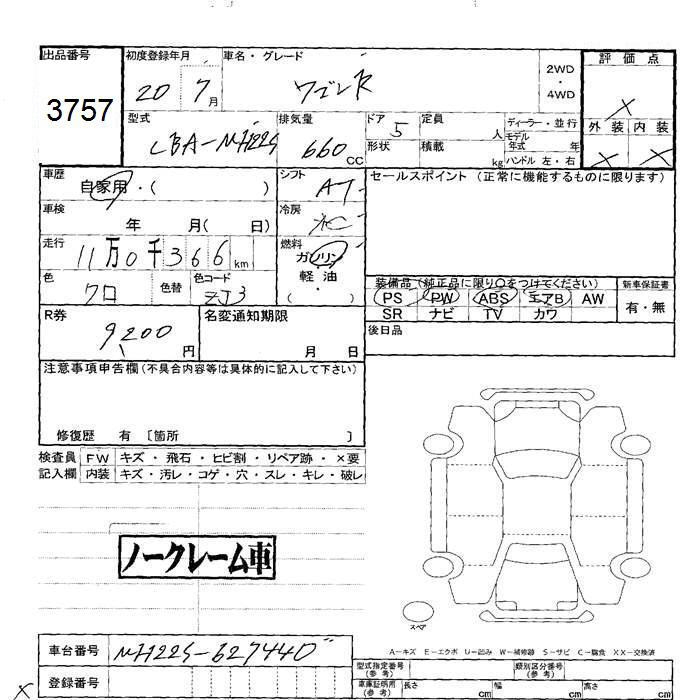 出品番号
3757
初度登録年月
20 7月
車名・グレード
ワゴンR
2WD
・
4WD
評価点
×
型式
CBA-MH22S
排気量
660 CC
ドア 5
形状
定員 人
積載 kg
ディーラー・並行
モデル年式 年
ハンドル 左・右
外装 内装
× ×
車歴
自家用・( )
シフト
AT
セールスポイント (正常に機能するものに限ります)
車検
年 月( 日)
冷房
走行
11万0千366km
燃料
ガソリン
軽油
・
( )
色
クロ
色替
色コード
ZJ3
装備品 (純正品に限り○をつけてください)
PS PW ABS エアB AW
SR ナビ TV カワ
新車保証書
有・無
R券
9200円
名変通知期限
月 日
後日品
注意事項申告欄(不具合内容等は具体的に記入して下さい)
修復歴 有 〔箇所 〕
検査員 FW キズ・飛石・ヒビ割・リペア跡・×要
記入欄 内装 キズ・汚レ・コゲ・穴・スレ・キレ・破レ
ノークレーム車
スペア
A-キズ E-エクボ U-凹み W-補修跡 S-サビ C-腐食 XX-交換済
車台番号
MH22S-627440
登録番号
型式指定番号
(参考)
類別区分番号
(参考)
車庫証明用
(参考)
長さ cm
幅 cm
高さ cm
×